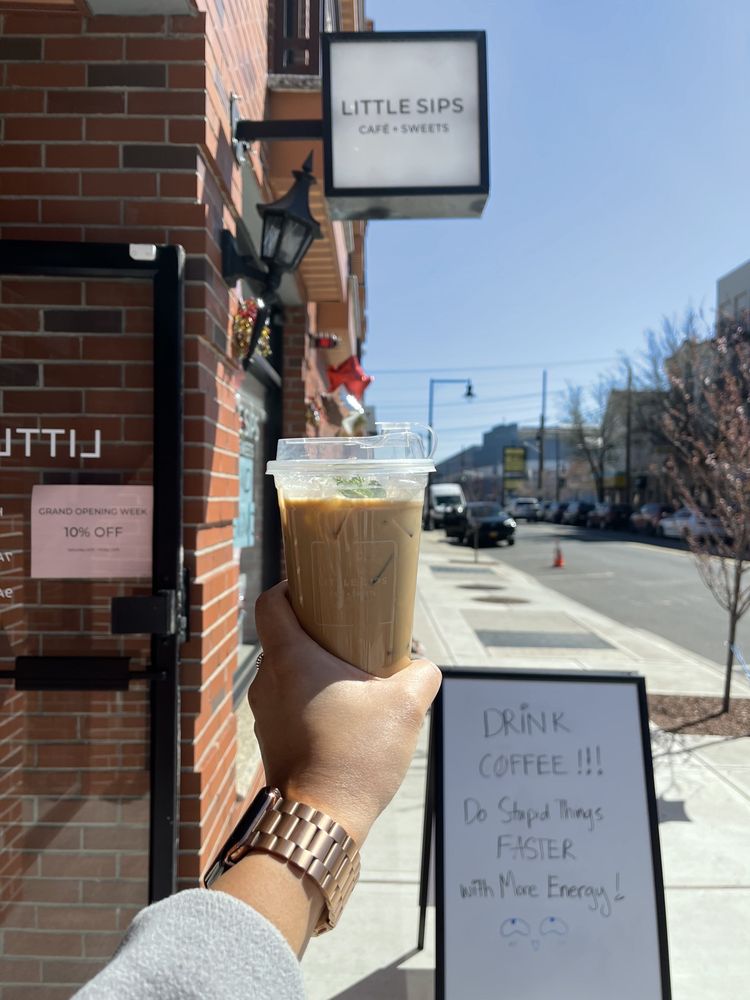 LITTLE SIPS
CAFÉ + SWEETS
LITTL
GRAND OPENING WEEK
10% OFF
LITTLE SIPS
DRINK
COFFEE !!!
Do Stupid Things
FASTER
with More Energy!